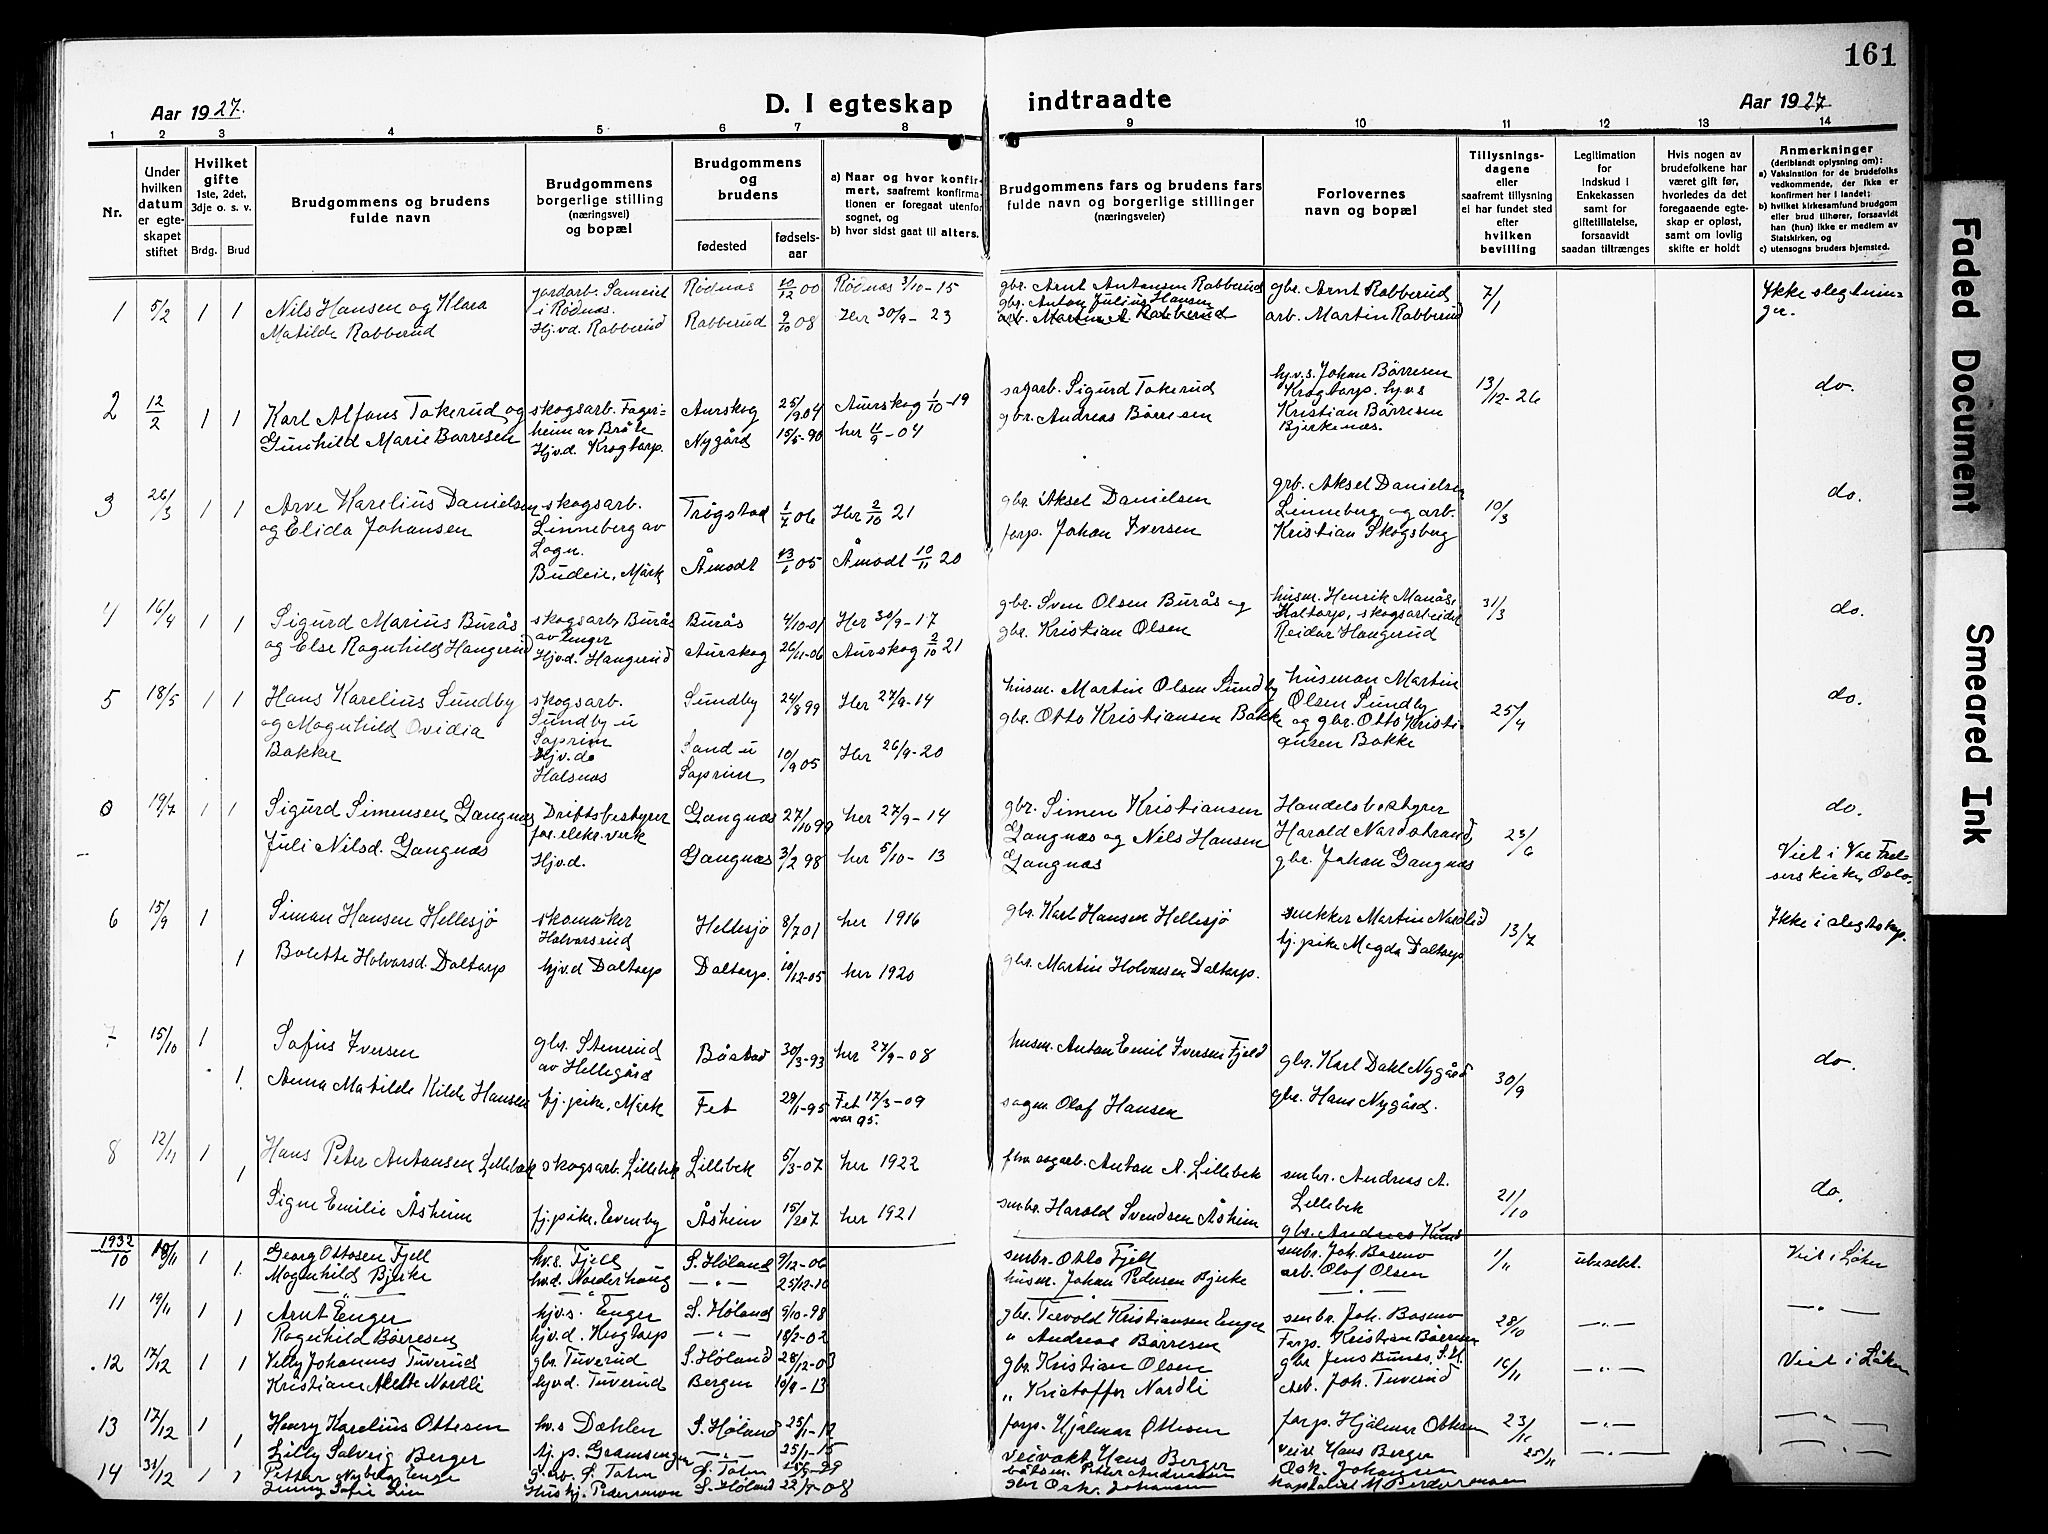 161
Aar 1927.
D. I egteskap indtraadte
Aar 1927
1 2 3 4 5 6 7 8 9 10 11 12 13 14
Nr.
Under hvilken datum er egteskapet stiftet
Hvilket gifte
1ste, 2det, 3dje o. s. v.
Brdg. Brud
Brudgommens og brudens fulde navn
Brudgommens borgerlige stilling (næringsvei) og bopæl
Brudgommens og brudens
fødested
fødselsaar
a) Naar og hvor konfirmert, saafremt konfirmationen er foregaat utenfor sognet, og
b) hvor sidst gaat til alters.
Brudgommens fars og brudens fars fulde navn og borgerlige stillinger (næringsveier)
Forlovernes navn og bopæl
Tillysningsdagene eller saafremt tillysning ei har fundet sted efter hvilken bevilling
Legitimation for indskud i Enkekassen samt for giftetillatelse, forsaavidt saadan tiltrænges
Hvis nogen av brudefolkene har været gift før, hvorledes da det foregaaende egteskap er opløst, samt om lovlig skifte er holdt
Anmerkninger
(deriblandt oplysning om):
a) Vaksination for de brudefolks vedkommende, der ikke er konfirmert her i landet;
b) hvilket kirkesamfund brudgom eller brud tilhører, forsaavidt han (hun) ikke er medlem av Statskirken, og
c) utensogns bruders hjemsted.
1 5/2 1 1 Nils Hansen og Klara
Matilde Rabberud
jordarb. Sameiet
i Rødnæs.
Hjv.d. Rabberud
Rødnæs 10/12 00 Rødnæs 3/10-15
Rabberud 9/10 08 Her 30/9-23
gbr. Arnt Antonsen Rabberud
gbr. Anton Julius Hansen
arb. Martinet Rabberud
gbr. Arnt Rabberud
arb. Martin Rabberud
7/1
Ikke slegtninger.
2 12/2 1 1 Karl Alfons Tokerud og
Gunhild Marie Børresen
skogsarb. Fagerheim av Bråte
Hjv.d. Krogtorp.
Aurskog 25/9 04 Aurskog 1/10-19
Nygård 15/5-90 her 11/9-04
sagarb. Sigurd Tokerud
gbr. Andreas Børresen
hj.v.s. Johan Børresen
Krogtorp. hj.v.s
Kristian Børresen
Bjerkenæs.
13/12-26
do.
3 26/3 1 1 Arve Karelius Danielsen
og Elida Johansen
skogsarb.
Linneberg av
Logn.
Budeie, Mørk
Trøgstad 1/7 06 Her 2/10 21
Åmodt 13/1 05 Åmodt 10/11 20
gbr. Aksel Danielsen
forp. Johan Iversen
grb. Aksel Danielsen
Linneberg og arb.
Kristian Skogsberg
10/3
do.
4 16/4 1 1 Sigurd Marius Burås
og Else Ragnhild Haugerud
skogsarb. Burås
av Enger
Hjv.d. Haugerud
Burås 4/10-01 Her 30/9-17
Aurskog 26/11-06 Aurskog 2/10 21
gbr. Sven Olsen Burås og
gbr. Kristian Olsen
husm. Henrik Manås
Kaltorp, skogsarbeider
Reidar Haugerud
31/3
do.
5 18/5 1 1 Hans Karelius Sundby
og Magnhild Ovidia
Bakker
skogsarb.
Sundby u
Soprim
Hjv.d.
Halsnæs
Sundby 24/8 99 Her 27/9-14
Sand u
Soprim 10/9 05 Her 26/9-20
husm. Martin Olsen Sundby
gbr. Otto Kristiansen Bakke
husman Martin
Olsen Sundby
og gbr. Otto Kristiansen Bakke
25/4
do.
0 19/7 1 1 Sigurd Simensen Gangnæs
Juli Nilsd. Gangnæs
Driftsbestyrer
for elekr. verk
Hjv.d.
Gangnæs 27/10 99 her 27/9-14
Gangnæs 3/2 98 her 5/10-13
gbr. Simen Kristiansen
Gangnæs og Nils Hansen
Gangnæs
Handelsbestyrer
Harald Nordstrand
gbr. Johan Gangnæs
23/6
do.
Viet i Vor Frelsers kirke, Oslo.
6 15/9 1 Simon Hansen Hellesjø
1 Bolette Halvorsd. Daltorp
skomaker
Halvorsrud
hjv.d Daltorp
Hellesjø 8/7 01 her 1916
Daltorp. 10/12-05 her 1920
gbr. Karl Hansen Hellesjø
gbr. Martin Holvorsen Daltorp.
snekker Martin Nordlid
hj.pike Magda Daltorp
13/7
Ikke i slegtskap.
7 15/10 1 Sofus Iversen
1. Anna Matilde Kilde Hansen
gbr. Stenerud
av Hellegård
tj.pike, Mørk
Båstad 30/3-93 her 27/9-08
Fet 29/1-95 Fet 17/3-09
var 95.
husm. Anton Emil Iversen Fjeld
sagm. Olof Hansen
gbr. Karl Dahl Nygård
gbr. Hans Nygård.
30/9
do.
8 12/11 1 Hans Peter Antonsen Lillebek
1 Signe Emilie Åsheim
skogsarb. Lillebek
tj.pike, Evenby
Lillebek 5/3-07 her 1922
Åsheim 15/2 07 her 1921
fhv. sagarb. Anton A. Lillebek
smbr. Harald Svendsen Åsheim
smbr. Andreas A.
Lillebek
gbr. Andreas
21/10
do.
1932
10 18/11 1 1. Georg Ottosen Fjell
Magnhild Bjerke
hv.s. Fjell
hv.d. Norderhaug
S. Høland 9/12-06
—"— 25/12-10
smbr. Otto Fjell
husm. Johan Pedersen Bjerke
smbr. Joh. Basmo
arb. Olof Olsen
1/11
ubesekt.
Viet i Løken
11 19/11 1 1 Arnt Enger
Ragnhild Børresen
hjv.s. Enger
hjv.d. Krogtorp
S. Høland 9/10-98
—"— 18/2-02
gbr. Torvald Kristiansen Enger
" Andreas Børresen
smbr. Joh. Basmo
Forp. Kristian Børresen
28/10
—"—
—"—
12 17/12 1 1 Villy Johannes Tuverud
Kristiane Alette Nordli
gbr. Tuverud
hjv.d. Tuverud
S. Høland 28/12-03
Bergen 10/9-13
gbr. Kristian Olsen
" Kristoffer Nordli
gbr Jens Bunes, S.H.
arb. Joh. Tuverud
16/11
—"—
Viet i Løken
13 17/12 1 1 Henry Karelius Ottesen
Lilly Solveig Berger
hv.s Dæhlen
tj. p. Gramsenger
S. Høland 25/1-10
—"— 25/1-15
forp. Hjalmar Ottesen
veivokt. Hans Berger
forp. Hjalmar Ottesen
veiv Hans Berger
23/11
—"—
—"—
14 31/12 1 1 Petter Nyberg Enge
Jenny Sofie Lie
Hushj. Pedersmoen
S. Høland 22/9-08
båtsm. Peter Andreassen
gbr Osk. Johansen
Osk. Johansen
25/11
—"—
—"—
Faded Document
Smeared Ink